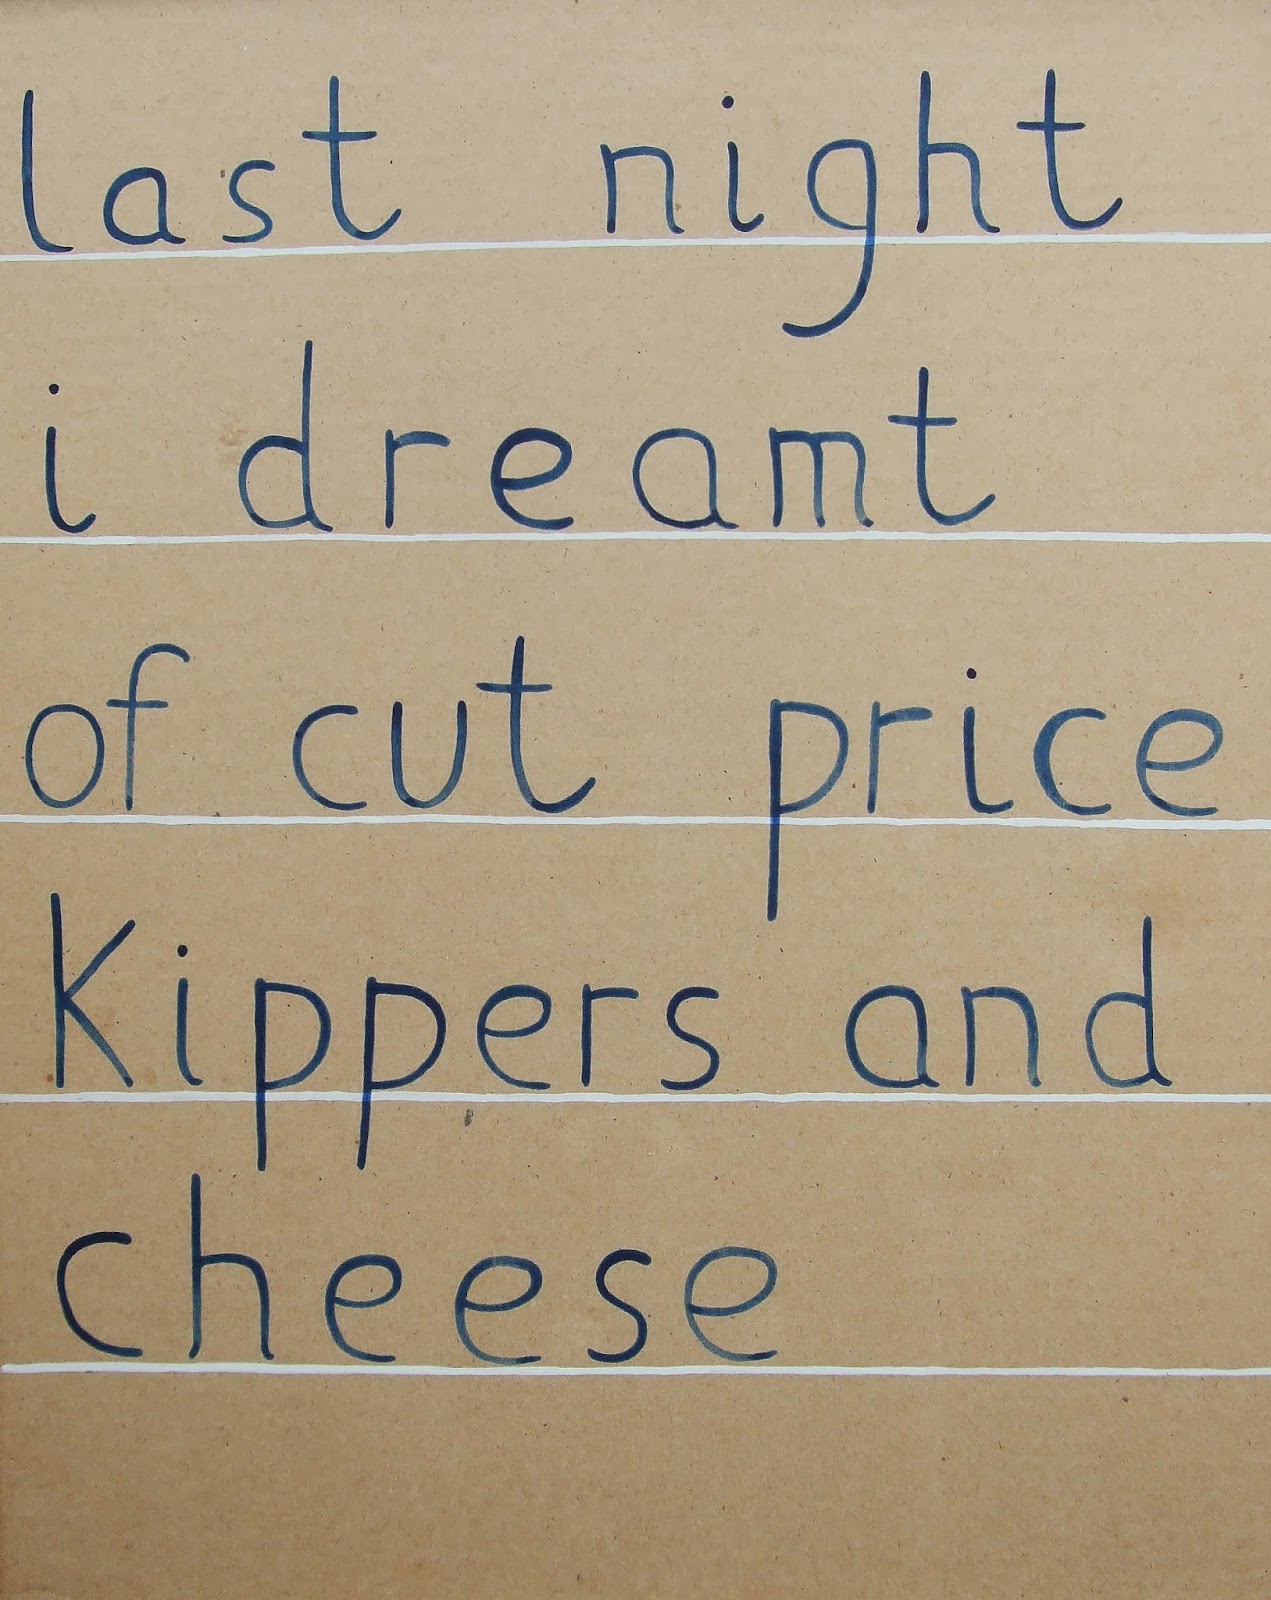 last night
i dreamt
of cut price
Kippers and
cheese